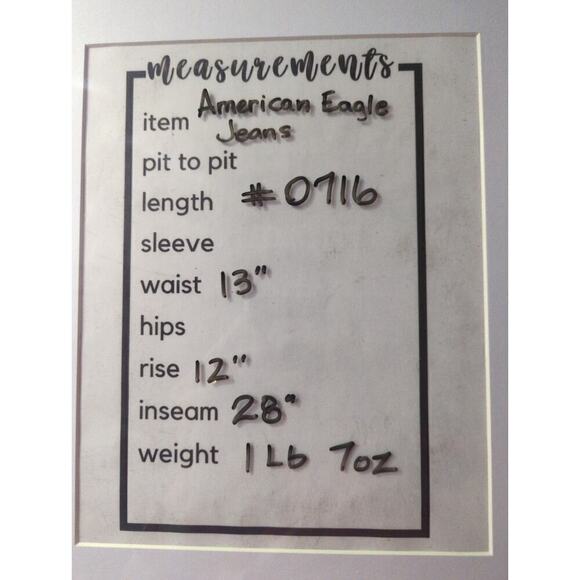 measurements
item American Eagle
Jeans
pit to pit
length #0716
sleeve
waist 13"
hips
rise 12"
inseam 28"
weight 1 Lb 7oz